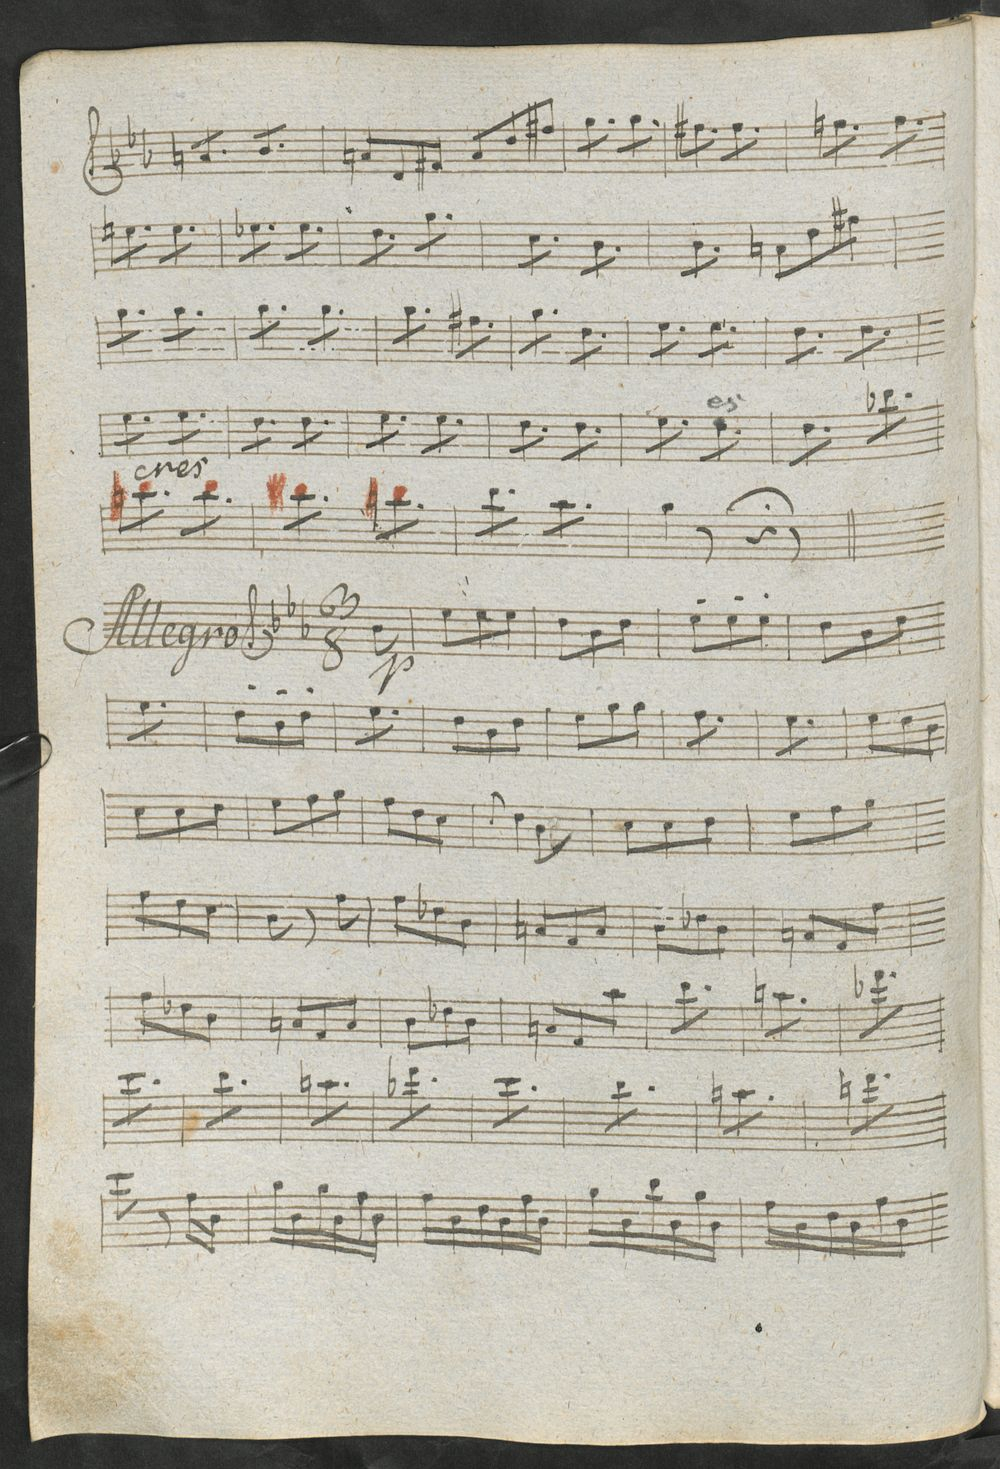 es
cres
Allegro 3 8
p